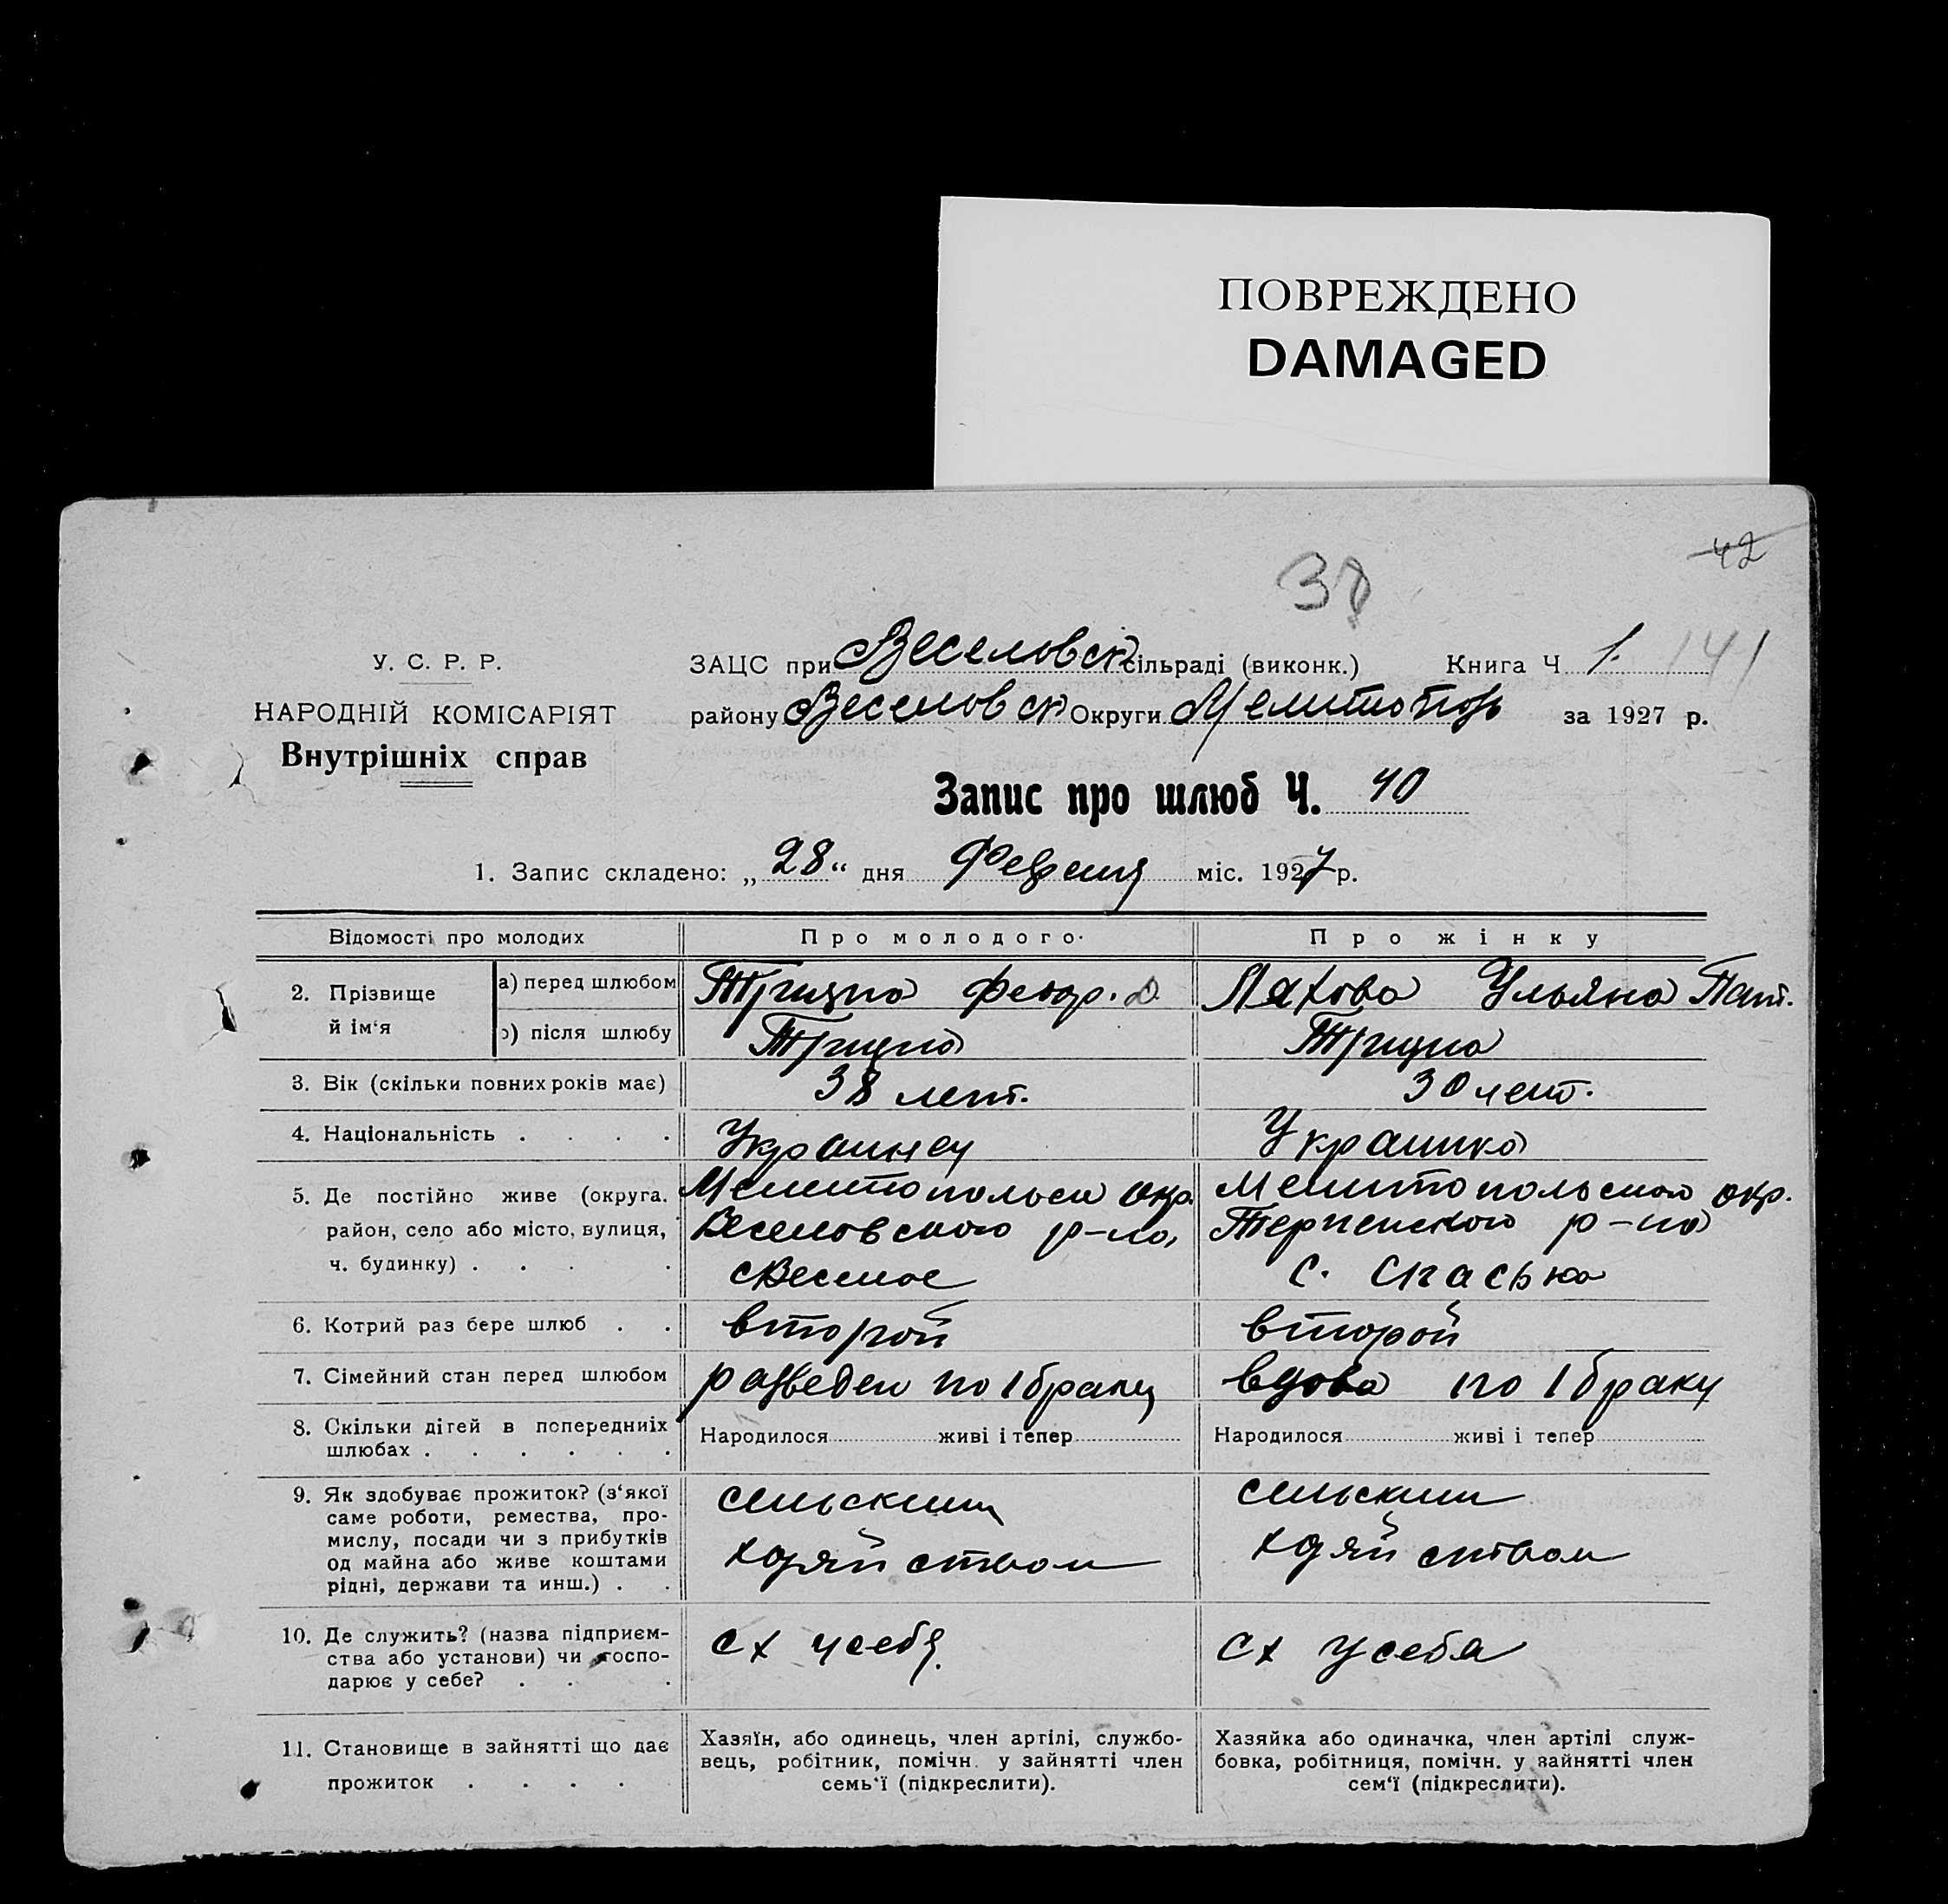 ПОВРЕЖДЕНО
DAMAGED
42
38
У. С. Р. Р.
НАРОДНІЙ КОМІСАРІЯТ
Внутрішніх справ
ЗАЦС при Веселовск сільраді (виконк.) Книга Ч 1. 141
району Веселовск Округи Мелитопол за 1927 р.
Запис про шлюб Ч. 40
1. Запис складено: „28“ дня Февраля міс. 1927 р.
Відомості про молодих Про молодого. Про жінку
2. Прізвище й ім‘я а) перед шлюбом Феодр. Ляхова Ульяна Пант.
б) після шлюбу
3. Вік (скільки повних років має) 38 лет. 30 лет.
4. Національність . . . . Украинец Украинка
5. Де постійно живе (округа. Мелитопольск окр. Мелитопольского окр.
район, село або місто, вулиця, Веселовского р-на, Терпенского р-на
ч. будинку) . . . . с Веселое с. Спаська
6. Котрий раз бере шлюб . . второй второй
7. Сімейний стан перед шлюбом разведен по 1 браку вдова по 1 браку
8. Скільки дітей в попередниіх Народилося живі і тепер Народилося живі і тепер
шлюбах . . . . . .
9. Як здобуває прожиток? (з‘якої сельским сельским
саме роботи, ремества, про-
мислу, посади чи з прибутків
од майна або живе коштами хозяйством хозяйством
рідні, держави та инш.) . .
10. Де служить? (назва підприєм- сх у себя сх у себя
ства або установи) чи госпо-
дарює у себе? . . .
11. Становище в зайнятті що дає
прожиток . . . .
Хазяїн, або одинець, член артілі, службо-
вець, робітник, помічн. у зайнятті член
семь‘ї (підкреслити).
Хазяйка або одиначка, член артілі служ-
бовка, робітниця, помічн. у зайнятті член
сем‘ї (підкреслити).